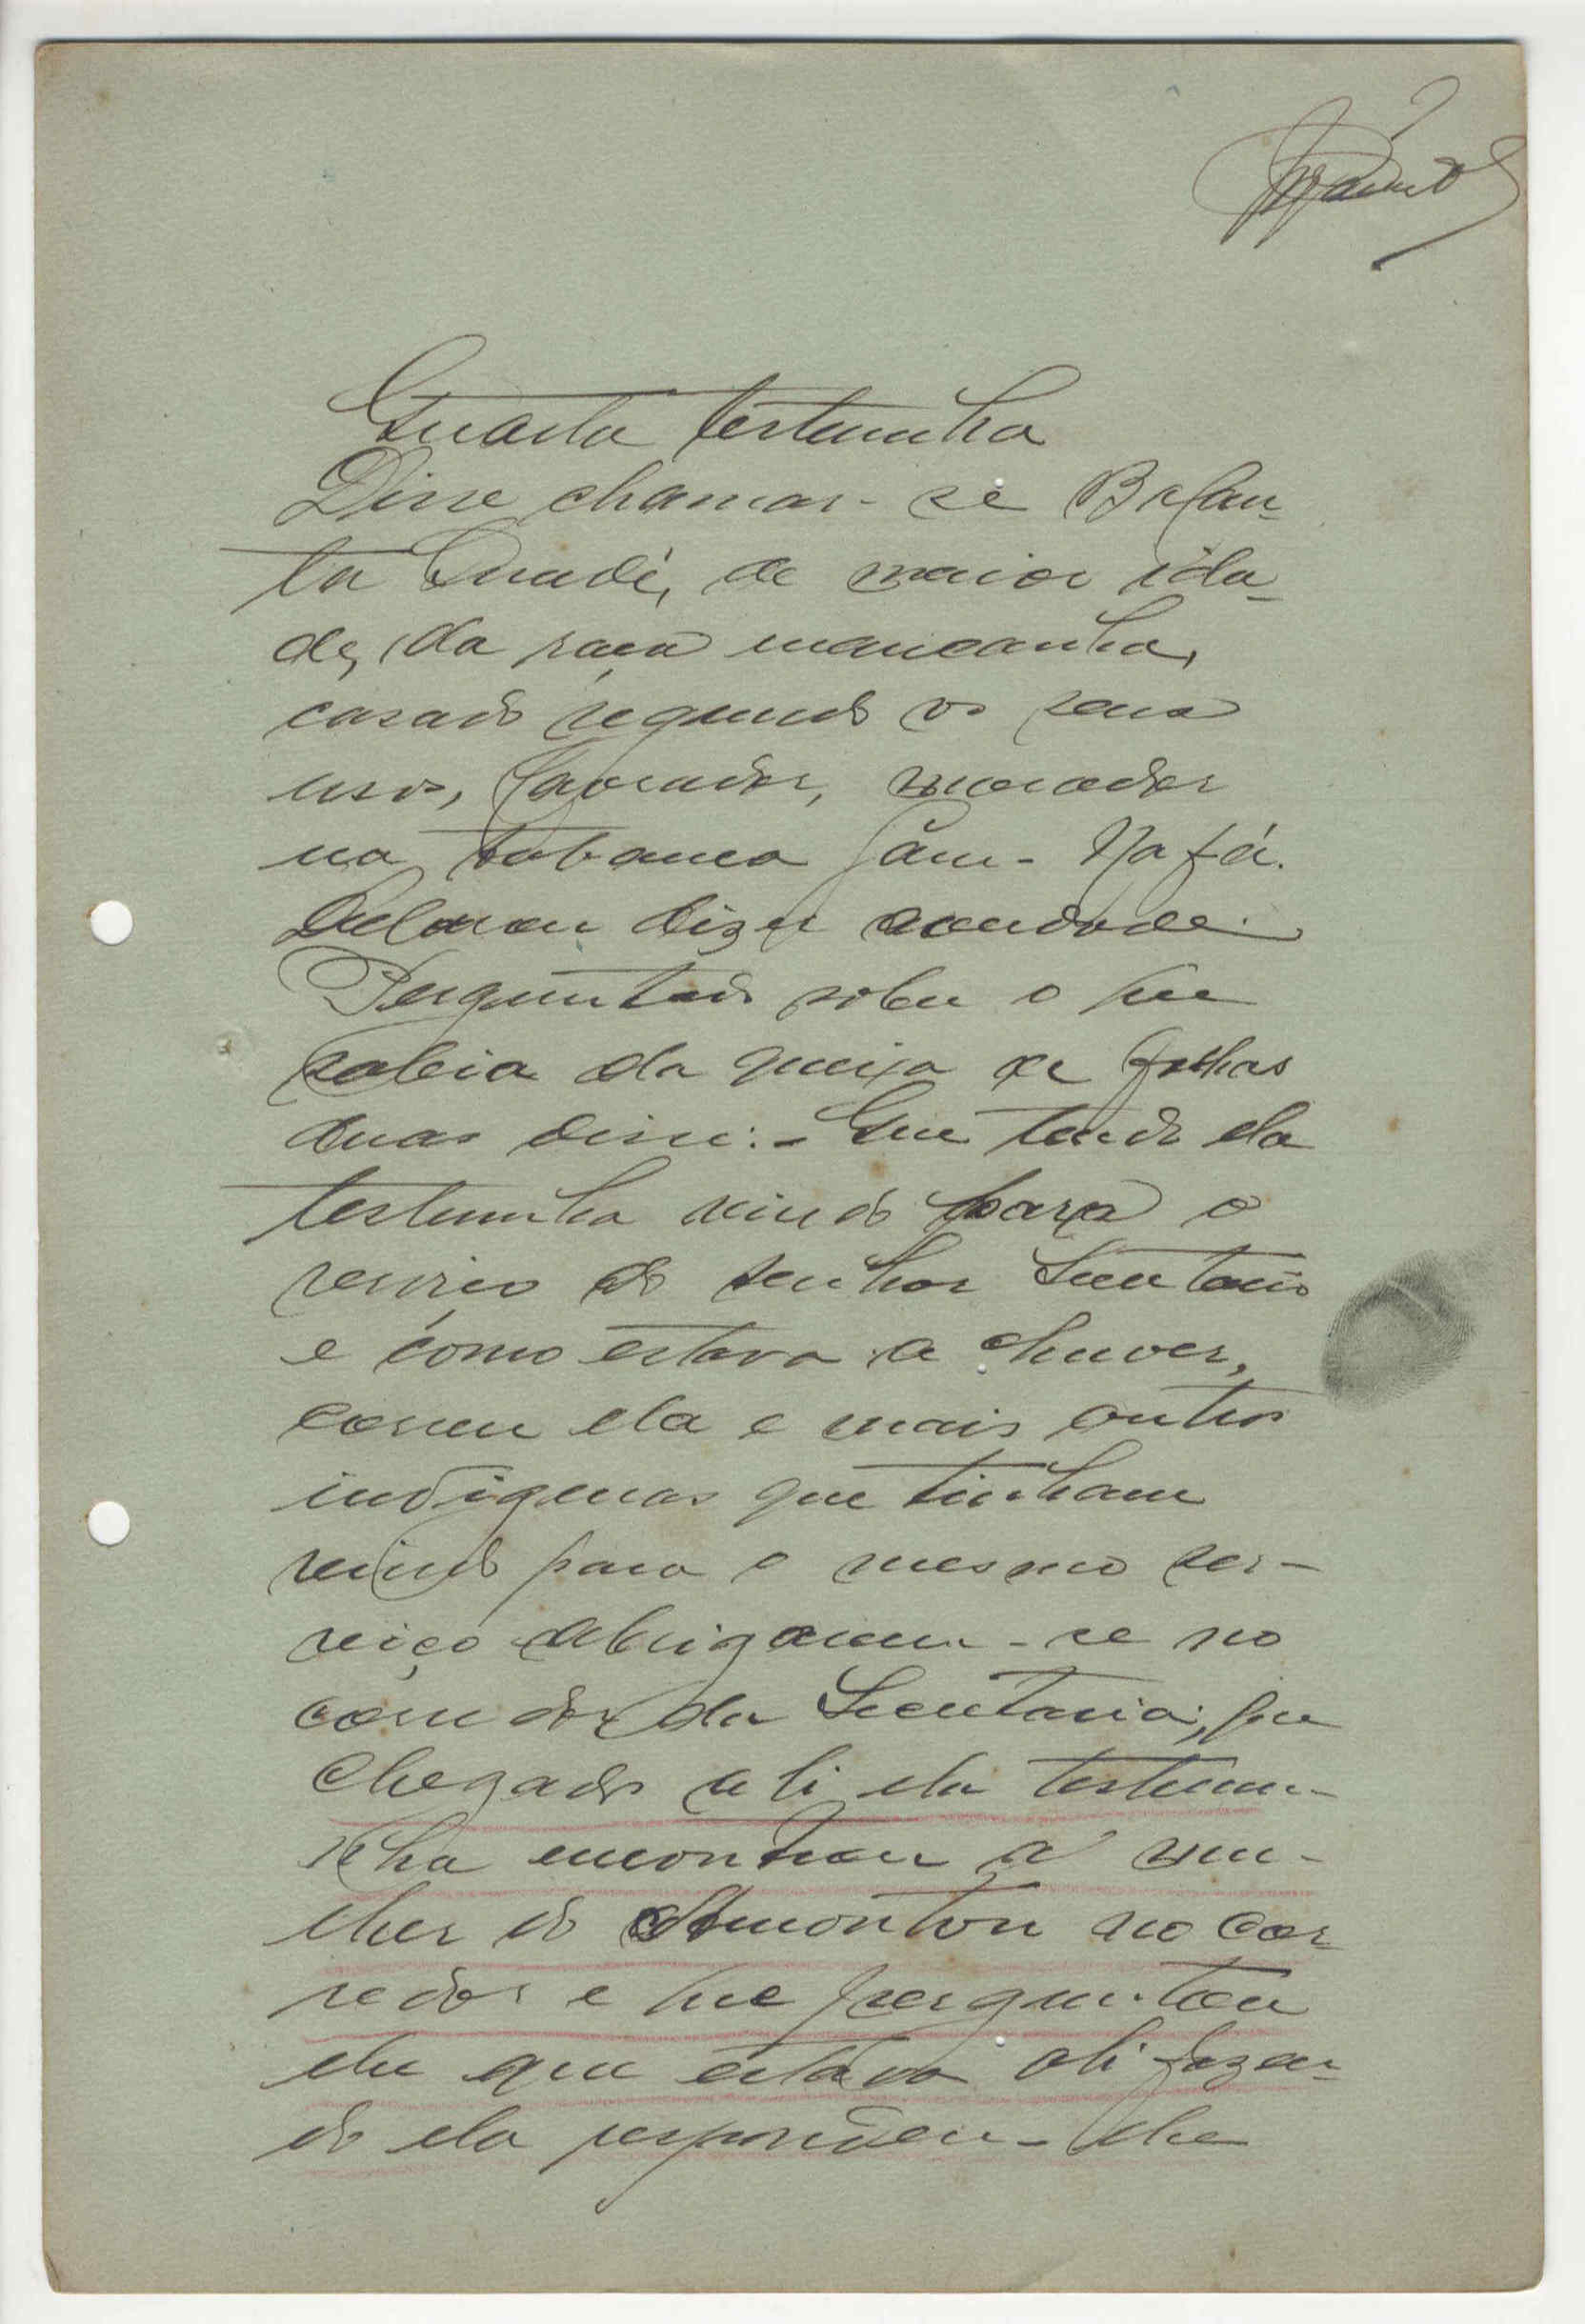 Quarta testemunha
Disse chamar-se Befan-
ta Quadé, de maior ida-
de, da raça mancanha,
casado segundo os seus
usos, lavrador, morador
na tabanca Jàm-Nafá.
Declarou dizer a verdade.
Perguntado sobre o que
sabia da queixa de folhas
duas disse:- Que tendo ela
testemunha vindo para o
serviço do senhor Secretario
e como estava a chuver,
correu ela e mais outros
indigenas que tinham
vindo para o mesmo ser-
viço abrigarem-se no
corredor da Secretaria, que
chegado ali ela testemu-
nha encontrou a mu-
lher do no cor-
redor e que perguntou
ela que estava ali fazen-
do ela respondeu-lhe